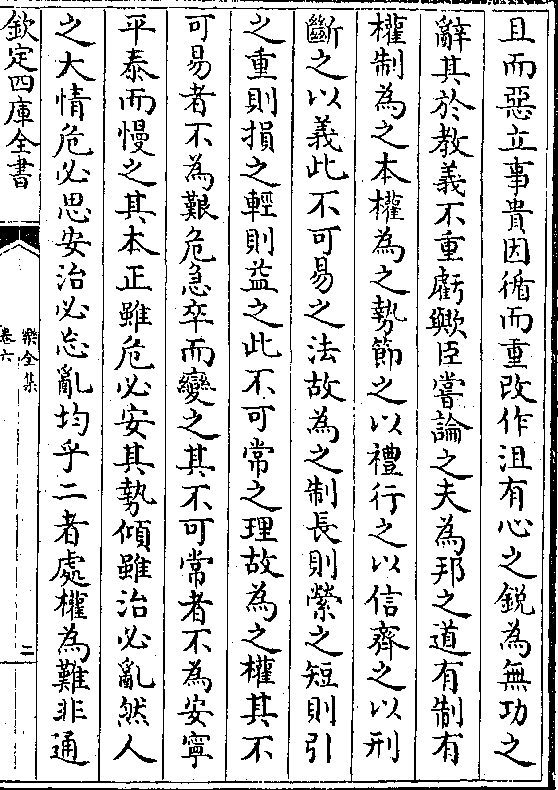 且而惡立事貴因循而重改作沮有心之鋭為無功之
辭其於教義不重虧歟臣嘗論之夫為邦之道有制有
權制為之本權為之勢節之以禮行之以信齊之以刑
斷之以義此不可易之法故為之制長則縈之短則引
之重則損之輕則益之此不可常之理故為之權其不
可易者不為艱危急卒而變之其不可常者不為安寧
平泰而慢之其本正雖危必安其勢傾雖治必亂然人
之大情危必思安治必忘亂均乎二者處權為難非通
欽定四庫全書
樂全集
卷六
二